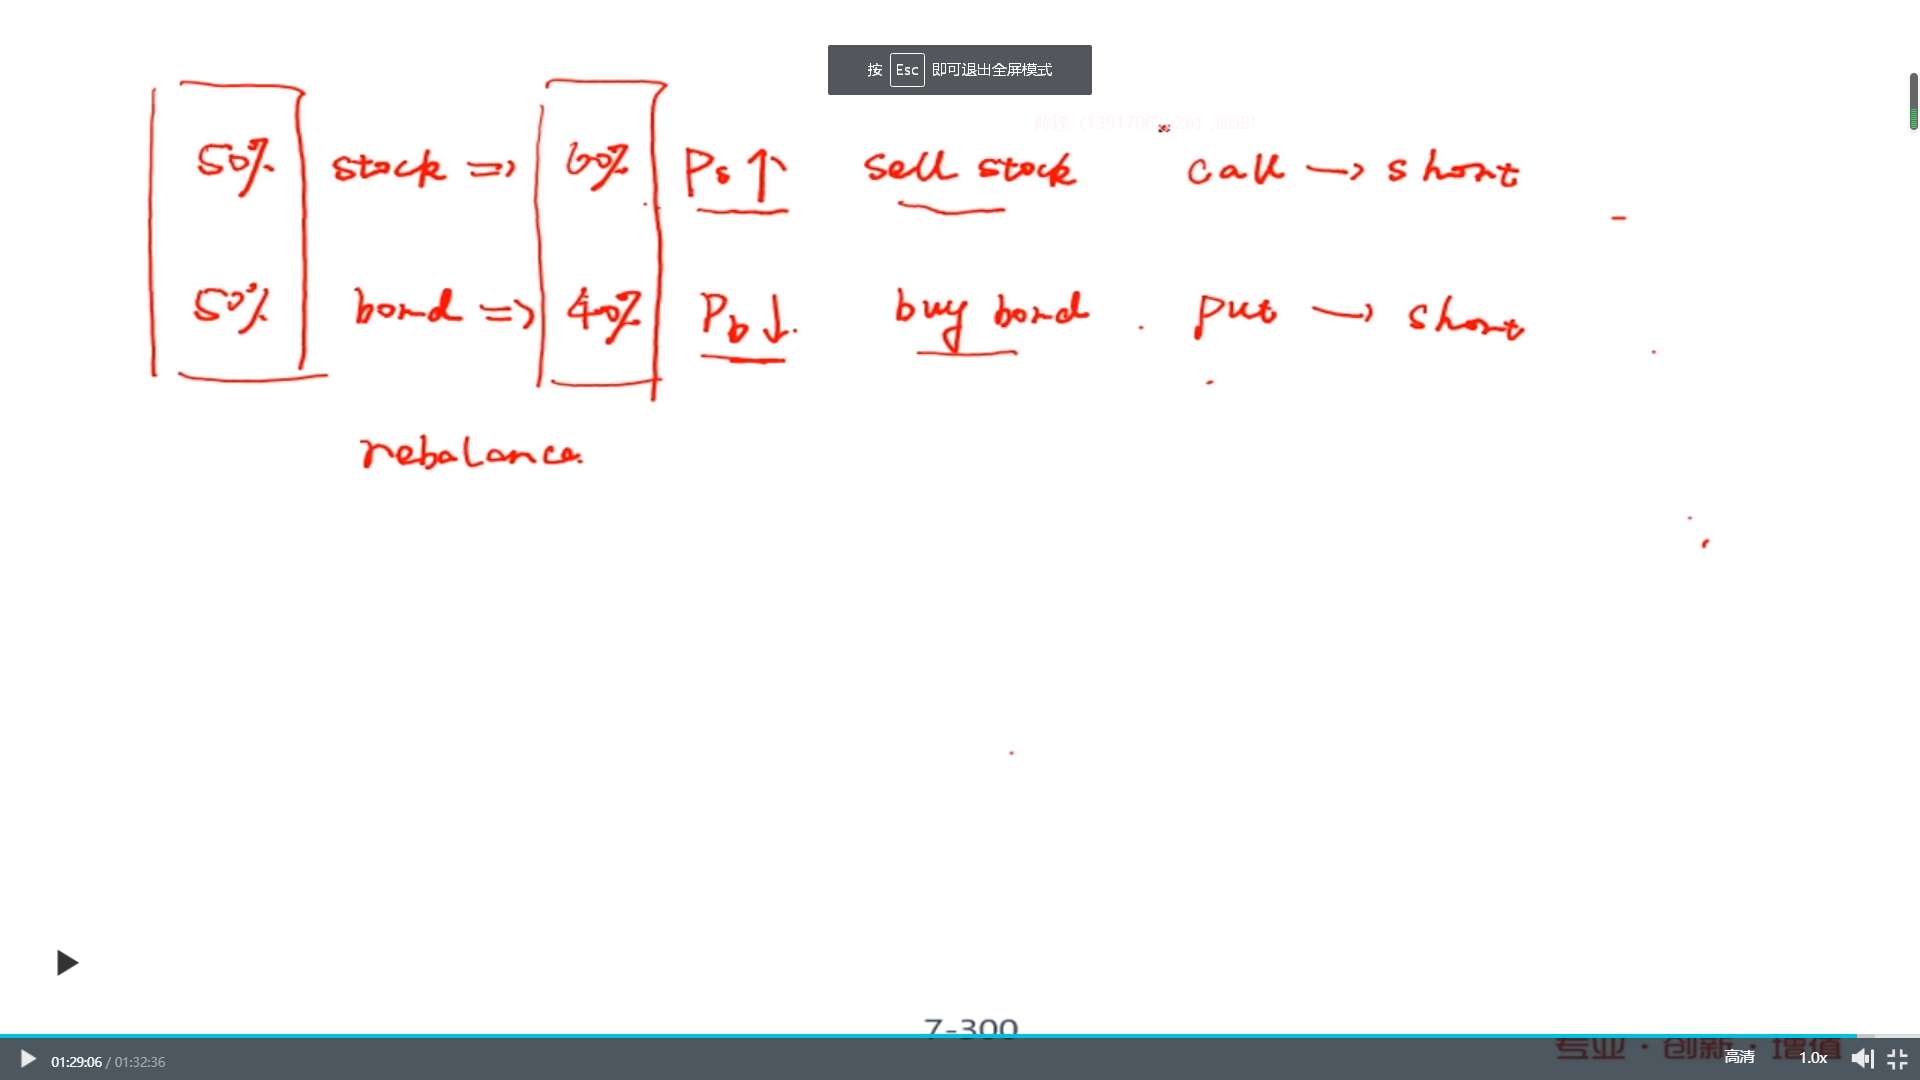 按 Esc 即可退出全屏模式
50% stock => 60% Ps↑ sell stock call → short
50% bond => 40% Pb↓ buy bond put → short
rebalance
7-300
专业·创新·增值
01:29:06 / 01:32:36 高清 1.0x